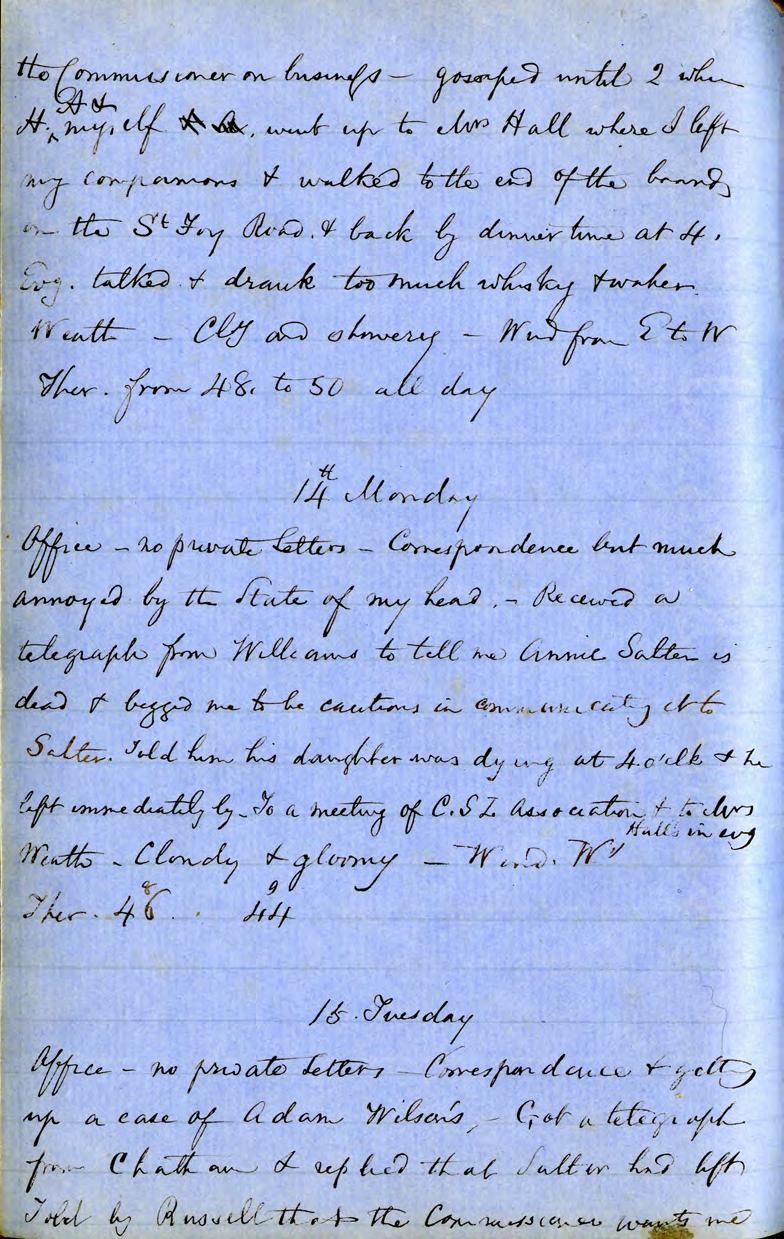 the Commissioner on business - gossiped until 2 when
A &
H. myself went up to Mrs Hall where I left
my companions & walked to the end of the
on the St Foy Road. & back by dinner time at 4.
Evg. talked & drank too much whisky & water.
Weath - Cldy and showery - Wind from E to W
Ther. from 48. to 50 all day
14th Monday
Office - no private Letters - Correspondence but much
annoyed by the State of my head. - Received a
telegraph from Williams to tell me Annie Salter is
dead & begged me to be cautious in communicating it to
Salter. Told him his daughter was dying at 4. o'clk & he
left immediately by - To a meeting of C.S.L Association & to Mrs
Hall's in evg
Weath - Cloudy & gloomy - Wind. W'
8 9
Ther. 46 . 44
15. Tuesday
Office - no private Letters - Correspondence & gettg
up a case of Adam Wilson's, - Got a telegraph
from Chatham & replied that Salter had left
Told by Russell that the Commissioner wants me